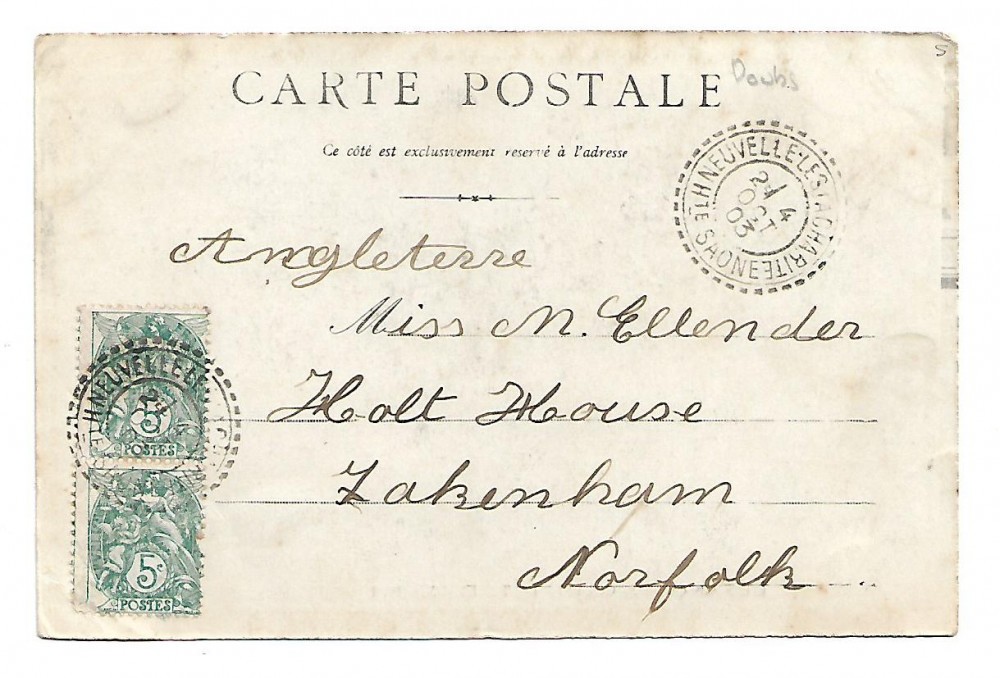 S
Doubs
CARTE POSTALE
Ce côté est exclusivement reservé à l'adresse
NEUVELLE-LES-LACHARITE
24
OCT
03
HTE SAONE
Angleterre
Miss M. Ellender
Holt House
Fakenham
Norfolk
NEUVELLE-LE
5c
POSTES
5c
POSTES